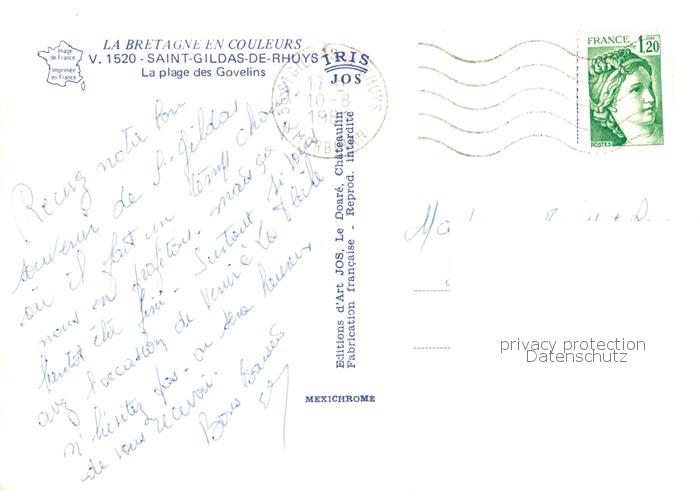 LA BRETAGNE EN COULEURS
V. 1520 - SAINT-GILDAS-DE-RHUYS
La plage des Govelins
Image
de France
Imprimée
en France
IRIS
JOS
17
10-8
MORBIHAN
FRANCE
1,20
POSTES
Recevez notre bon
souvenir de St Gildas
où il fait un temps
nous en profitons. mais
bientôt été fini. Surtout si vous
avez l'occasion de venir à La
n'hésitez pas - on sera heureux
de vous recevoir.
Bons Baisers
Editions d'Art JOS, Le Doaré, Châteaulin
Fabrication française - Reprod. interdite
MEXICHROME
privacy protection
Datenschutz